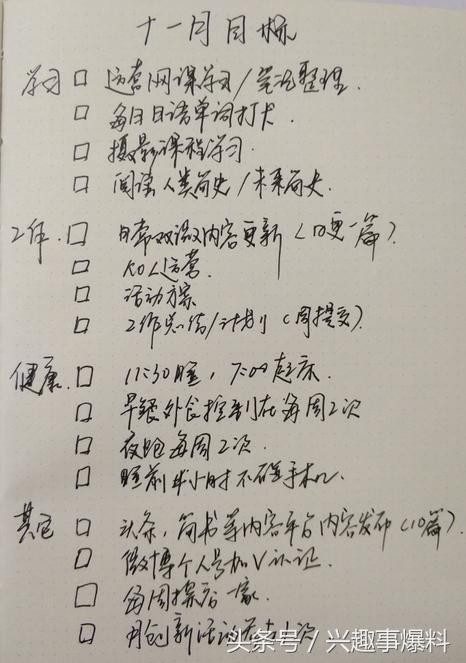 十一月目标
学习 □ 运营网课学习/笔记整理.
□ 每日日语单词打卡.
□ 摄影课程学习
□ 阅读人类简史/未来简史.
工作. □ 日常双微内容更新（日更一篇）.
□ KOL运营.
□ 活动方案
□ 工作总结/计划（周提交）.
健康. □ 11:30睡, 7:00起床.
□ 早餐外食控制在每周2次
□ 夜跑每周2次.
□ 睡前半小时不碰手机.
其它 □ 头条, 简书等内容平台内容发布（10篇）.
□ 微博个人号加V认证.
□ 每周探店一家.
□ 月创新活动 一次
头条号/兴趣事爆料